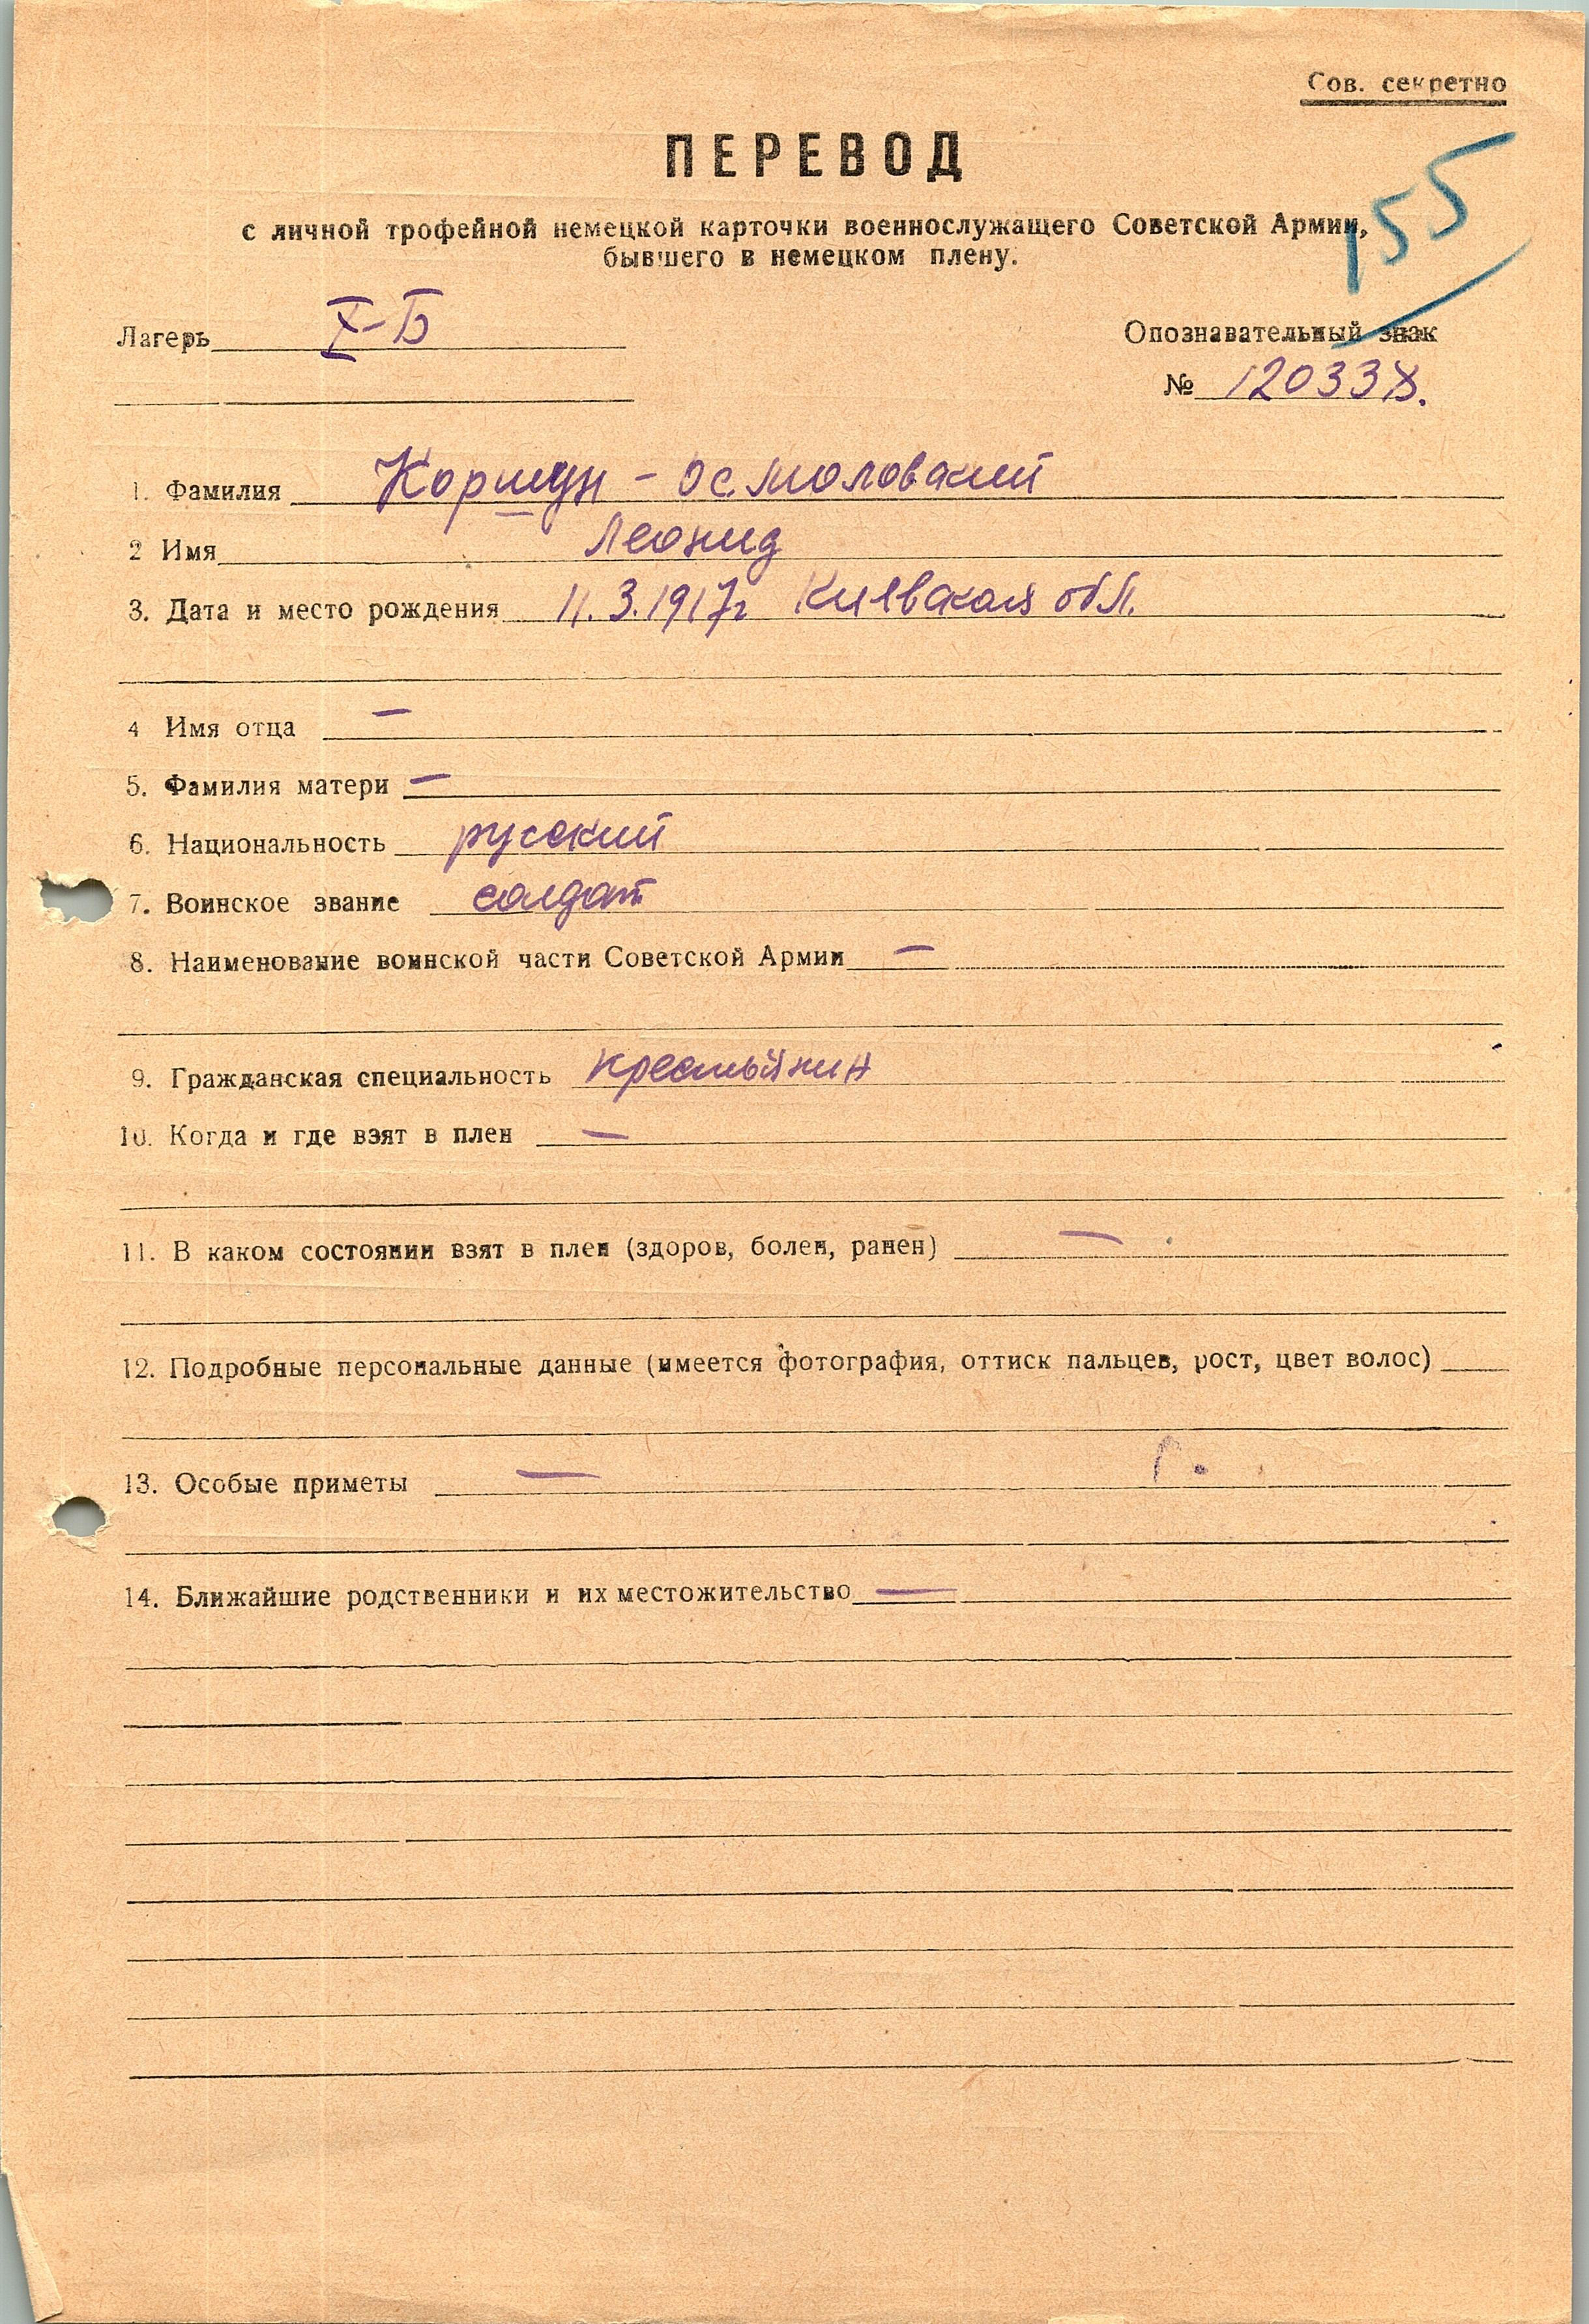 Сов. секретно
155
ПЕРЕВОД
с личной трофейной немецкой карточки военнослужащего Советской Армии,
бывшего в немецком плену.
Лагерь X-Б
Опознавательный знак
№ 120338.
1. Фамилия Коршун - Осмоловский
2 Имя Леонид
3. Дата и место рождения 11.3.1917г Киевская обл.
4 Имя отца —
5. Фамилия матери —
6. Национальность русский
7. Воинское звание солдат
8. Наименование воинской части Советской Армии —
9. Гражданская специальность крестьянин
10. Когда и где взят в плен —
11. В каком состоянии взят в плен (здоров, болен, ранен) —
12. Подробные персональные данные (имеется фотография, оттиск пальцев, рост, цвет волос)
13. Особые приметы —
14. Ближайшие родственники и их местожительство —